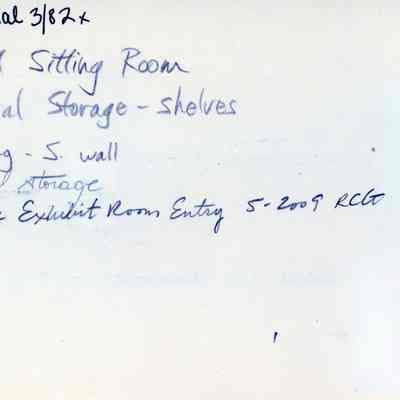 al 3/82x
Sitting Room
al Storage - shelves
g - S. wall
storage
Exhibit Room Entry 5-2009 RCG